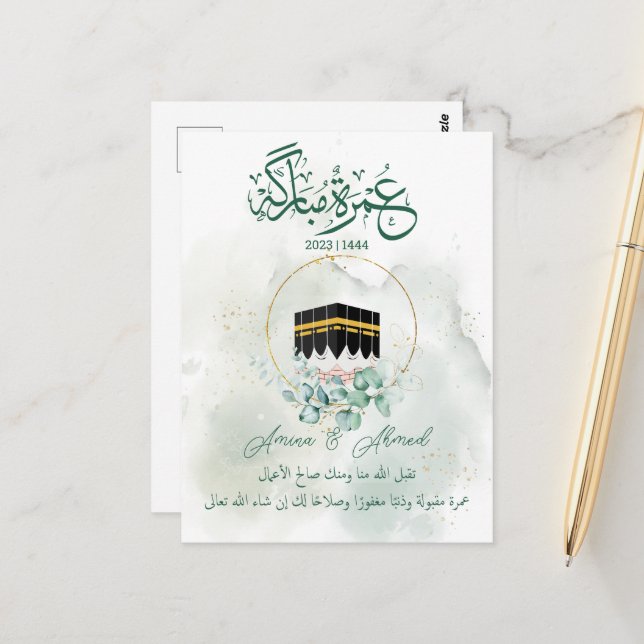 عُمْرَةٌ مُبَارَكَه
2023 | 1444
Amina & Ahmed
تقبل الله منا ومنك صالح الأعمال
عمرة مقبولة وذنبًا مغفورًا وصلاحًا لك إن شاء الله تعالى